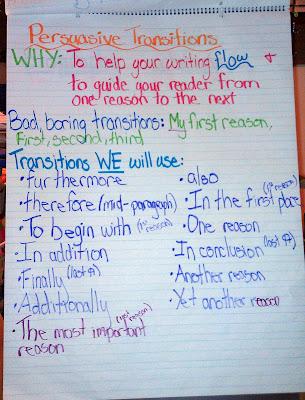 Persuasive Transitions
WHY: To help your writing flow &
to guide your reader from
one reason to the next
Bad, boring transitions: My first reason,
First, second, third
Transitions WE will use:
• furthermore
• therefore (mid-paragraph)
• To begin with (1st reason)
• In addition
• Finally (last ¶)
• Additionally
• The most important (1st reason)
reason
• also
• In the first place (1st reason)
• One reason
• In conclusion (last ¶)
• Another reason
• Yet another reason